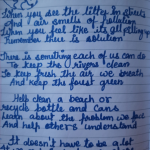 When you see the litter in streets
And air smells of pollution
When you feel like its all getting
Remember there is solution
There is something each of us can do
To keep the rivers clean
To keep fresh the air we breath
And keep the forest green
Help clean a beach or
recycle bottle and cans
Learn about the problem we face
And help others understand
It doesn't have to be a lot